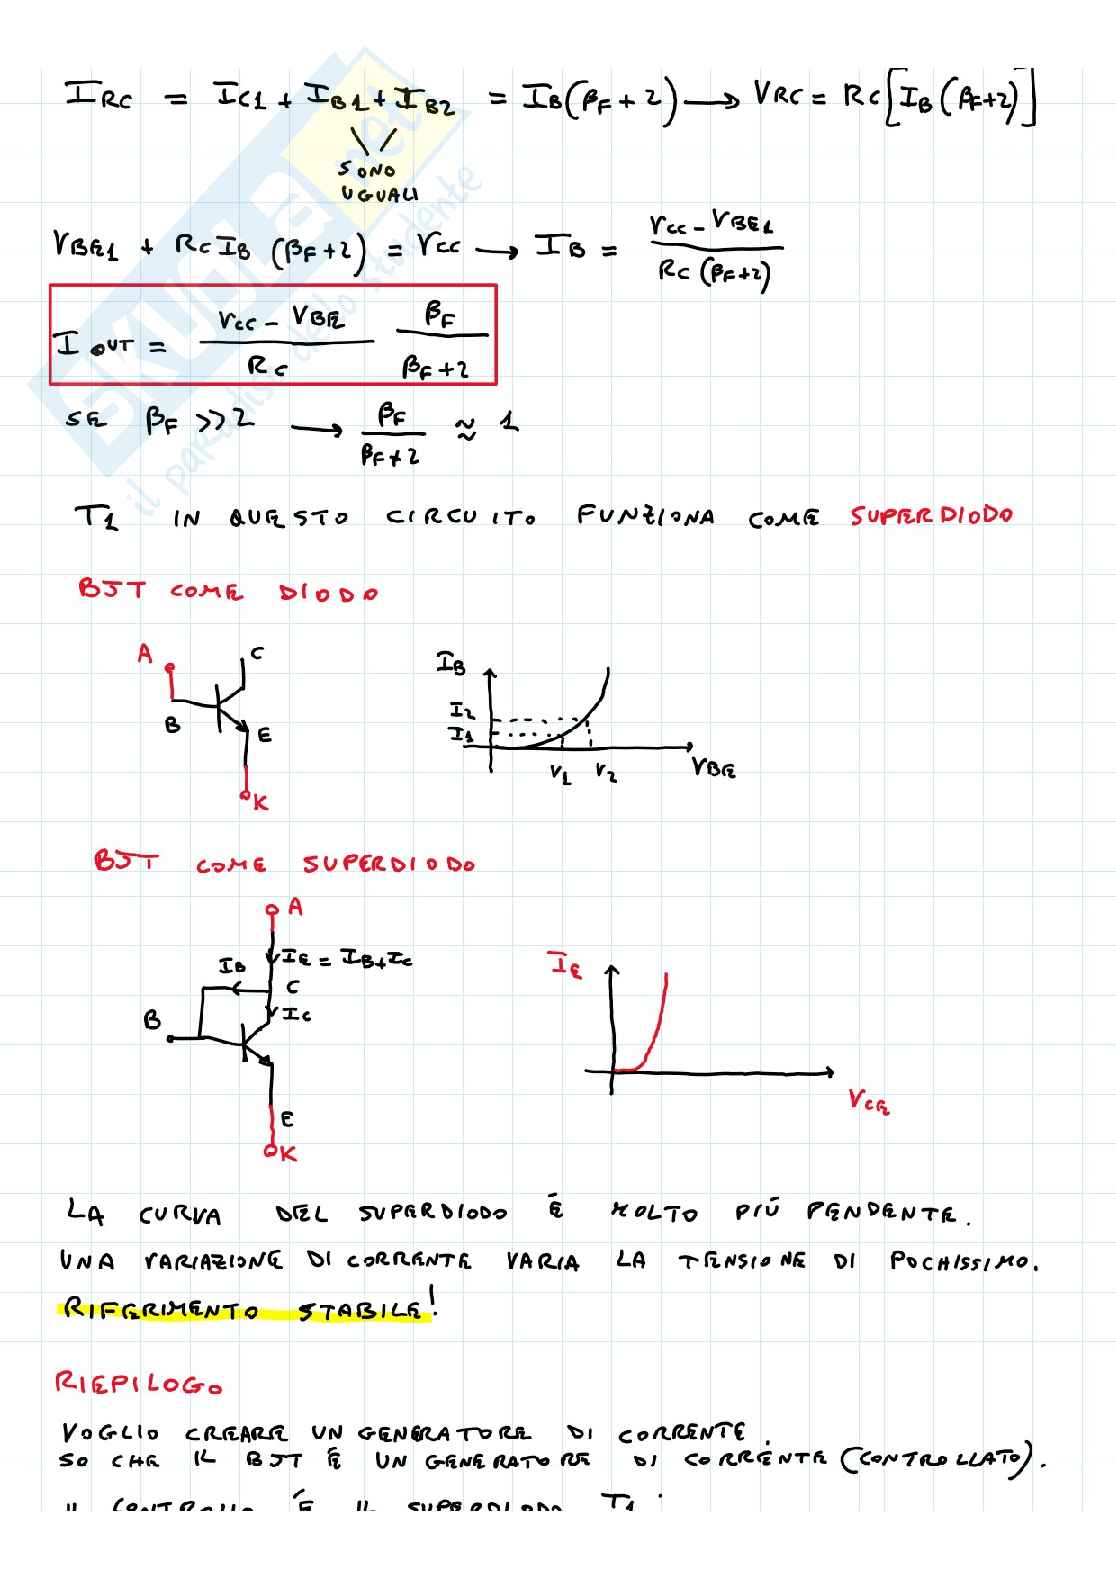 I_RC = I_C1 + I_B1 + I_B2 = I_B(β_F + 2) → V_RC = R_C[I_B(β_F+2)]
SONO
UGUALI
V_BE1 + R_C I_B (β_F+2) = V_CC → I_B = (V_CC - V_BE1) / (R_C (β_F+2))
I_OUT = (V_CC - V_BE) / R_C β_F / (β_F+2)
SE β_F >> 2 → β_F / (β_F+2) ≈ 1
T1 IN QUESTO CIRCUITO FUNZIONA COME SUPERDIODO
BJT COME DIODO
A C B E K
I_B I2 I1 V1 V2 V_BE
BJT COME SUPERDIODO
A
I_B I_E = I_B + I_C
C
B I_C
E
K
I_E V_CE
LA CURVA DEL SUPERDIODO È MOLTO PIÙ PENDENTE.
UNA VARIAZIONE DI CORRENTE VARIA LA TENSIONE DI POCHISSIMO.
RIFERIMENTO STABILE!
RIEPILOGO
VOGLIO CREARE UN GENERATORE DI CORRENTE.
SO CHE IL BJT È UN GENERATORE DI CORRENTE (CONTROLLATO).
IL CONTROLLO È IL SUPERDIODO T1
SKUOLA.net
il paradiso dello studente